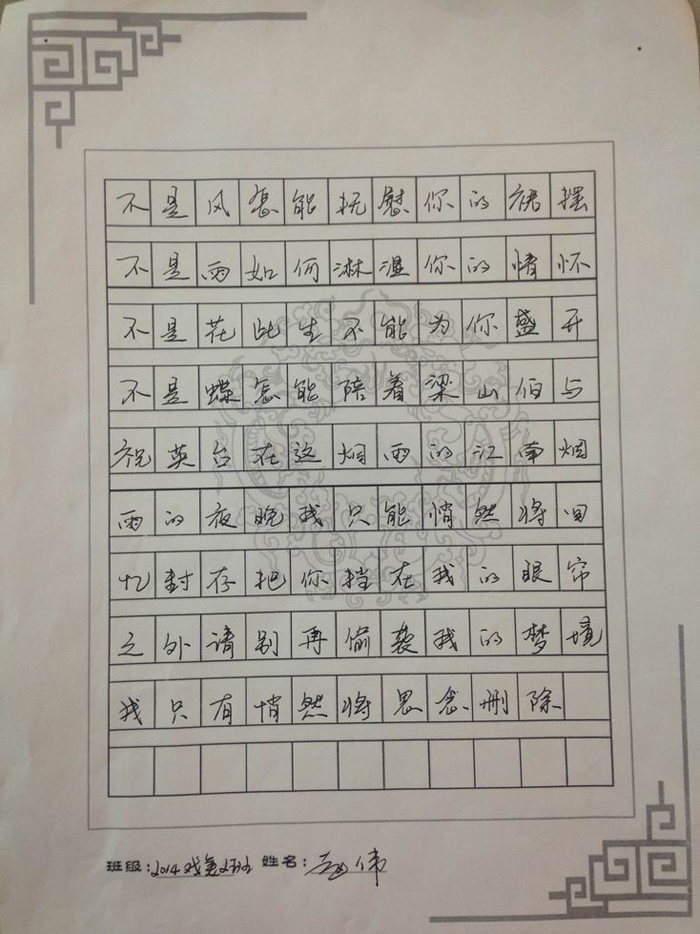 不是风怎能抚慰你的裙摆
不是雨如何淋湿你的情怀
不是花此生不能为你盛开
不是蝶怎能陪着梁山伯与
祝英台在这烟雨的江南烟
雨的夜晚我只能悄然将回
忆封存把你挡在我的眼帘
之外请别再偷袭我的梦境
我只有悄然将思念删除
班级:2014戏美2班 姓名: